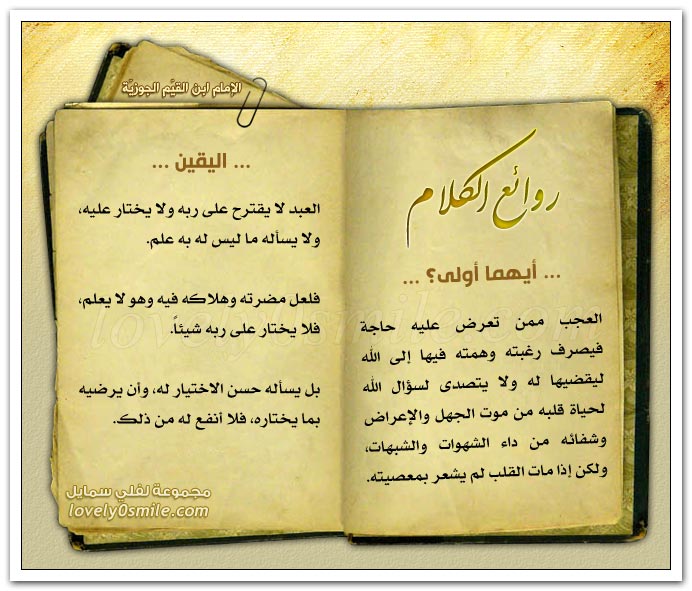 الإمام ابن القيَّم الجوزيَّة
روائع الكلام
... أيهما أولى؟ ...
العجب ممن تعرض عليه حاجة
فيصرف رغبته وهمته فيها إلى الله
ليقضيها له ولا يتصدى لسؤال الله
لحياة قلبه من موت الجهل والإعراض
وشفائه من داء الشهوات والشبهات،
ولكن إذا مات القلب لم يشعر بمعصيته.
... اليقين ...
العبد لا يقترح على ربه ولا يختار عليه،
ولا يسأله ما ليس له به علم.
فلعل مضرته وهلاكه فيه وهو لا يعلم،
فلا يختار على ربه شيئاً.
بل يسأله حسن الاختيار له، وأن يرضيه
بما يختاره، فلا أنفع له من ذلك.
lovely0smile.com
مجموعة لفلي سمايل
lovely0smile.com